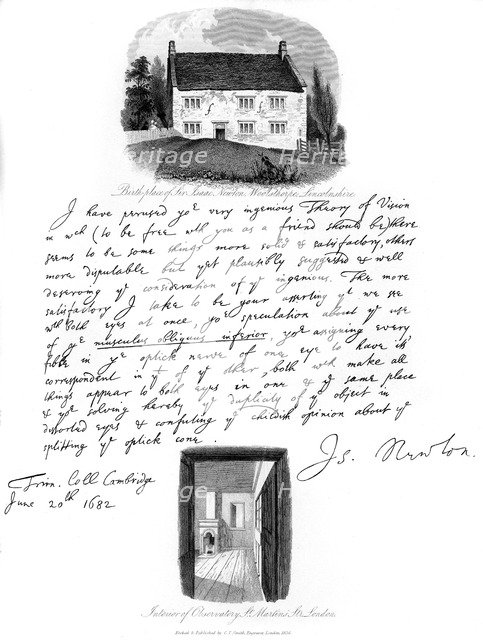 Heritage
Heritage
Birth place of Sir Isaac Newton, Woolsthorpe, Lincolnshire
I have perused yor very ingenious Theory of Vision
in wch (to be free with you as a friend should be) there
seems to be some things more solid & satisfactory, others
more disputable but yet plausibly suggested & well
deserving ye consideration of ye ingenious. The more
satisfactory I take to be your asserting yt we see
wth both eyes at once, yor speculation about ye use
of ye musculus obliquus inferior, yor assigning every
fibre in ye optick nerve of one eye to have its
correspondent in yt of ye other, both wch make all
things appear to both eyes in one & ye same place
& yor solving hereby ye duplicity of ye object in
distorted eyes & confuting ye childish opinion about ye
splitting ye optick cone.
Is. Newton.
Trin. Coll Cambridge
June 20th 1682
Heritage
Heritage
Interior of Observatory, St. Martins Str. London.
Etched & Published by C. J. Smith, Engraver, London,